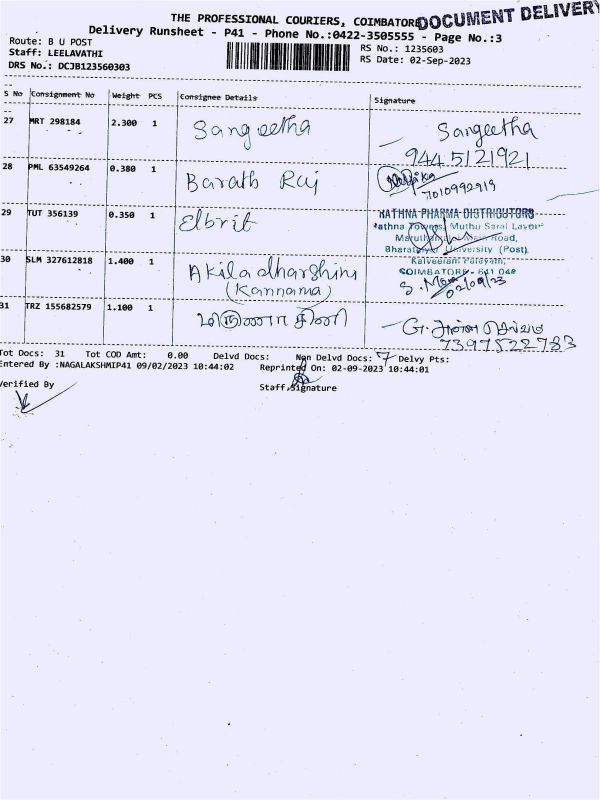 THE PROFESSIONAL COURIERS, COIMBATORE
DOCUMENT DELIVERY
Delivery Runsheet - P41 - Phone No.:0422-3505555 - Page No.:3
Route: B U POST
RS No.: 1235603
Staff: LEELAVATHI
RS Date: 02-Sep-2023
DRS No.: DCJB123560303
S No Consignment No Weight PCS Consignee Details Signature
27 MRT 298184 2.300 1 Sangeetha Sangeetha
9445121921
28 PML 63549264 0.380 1 Barath Raj
7010992919
29 TUT 356139 0.350 1 Elbrit RATHNA PHARMA DISTRIBUTORS
Rathna Towers, Muthu Saral Layout
Main Road,
Bharathiyar University (Post)
30 SLM 327612818 1.400 1 Akiladharshini
(Kannama)
Kalveeram Palayam,
COIMBATORE - 641 046
02/09/23
31 TRZ 155682579 1.100 1
7397522783
Tot Docs: 31 Tot COD Amt: 0.00 Delvd Docs: Non Delvd Docs: 7 Delvy Pts:
Entered By :NAGALAKSHMIP41 09/02/2023 10:44:02 Reprinted On: 02-09-2023 10:44:01
Verified By
Staff Signature